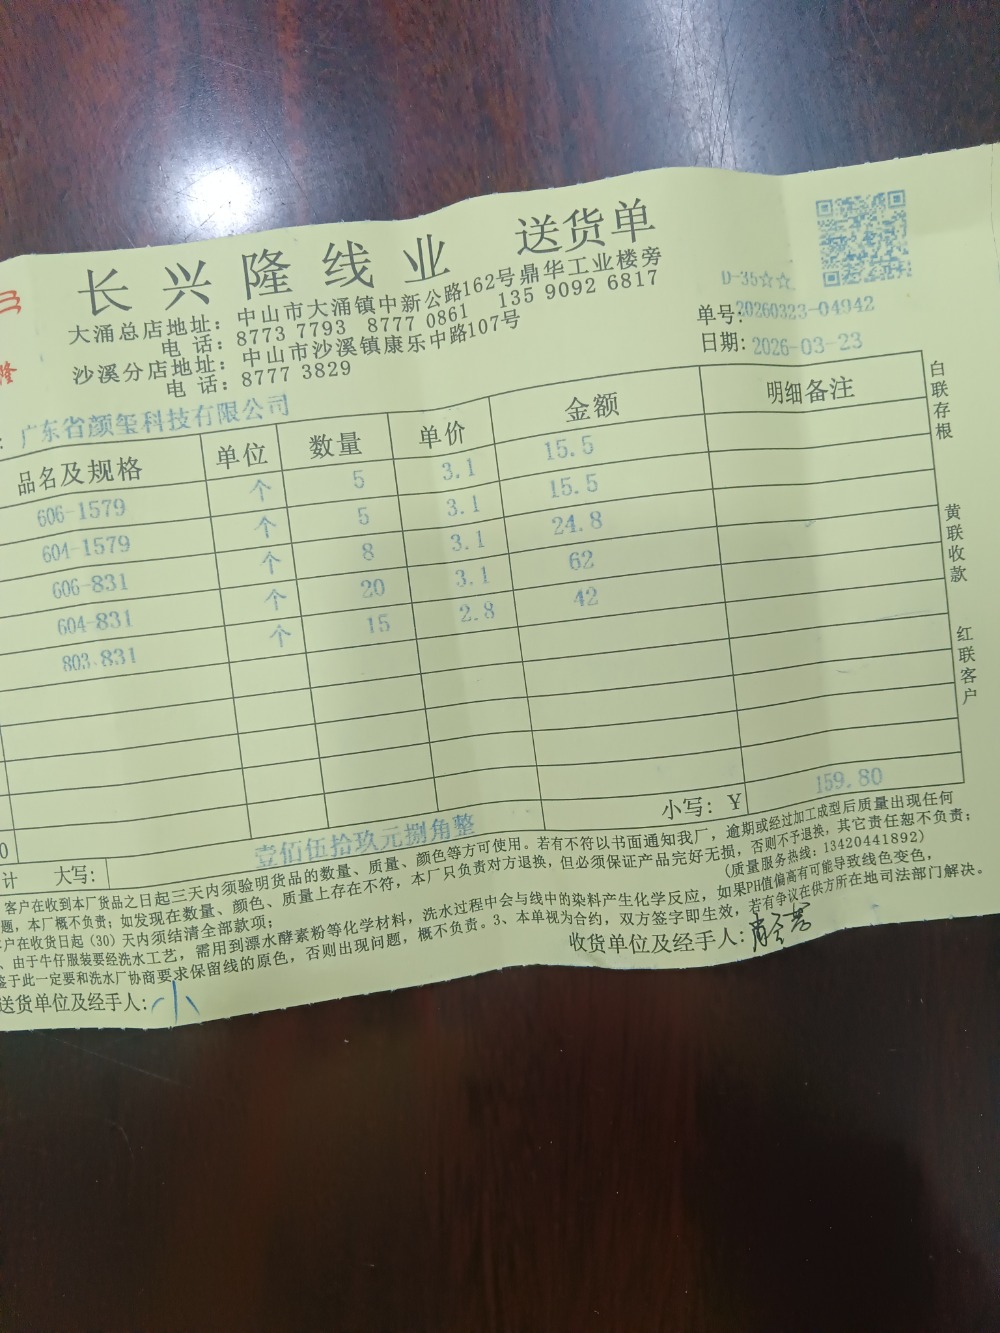 长兴隆线业 送货单
大涌总店地址：中山市大涌镇中新公路162号鼎华工业楼旁
电 话：8773 7793 8777 0861 135 9092 6817
沙溪分店地址：中山市沙溪镇康乐中路107号
电 话：8777 3829
D-35☆☆
单号:20260323-04942
日期:2026-03-23
隆
：广东省颜玺科技有限公司
品名及规格 单位 数量 单价 金额 明细备注
606-1579 个 5 3.1 15.5
604-1579 个 5 3.1 15.5
606-831 个 8 3.1 24.8
604-831 个 20 3.1 62
803-831 个 15 2.8 42
白联存根
黄联收款
红联客户
0
计 大写：壹佰伍拾玖元捌角整 小写：¥ 159.80
客户在收到本厂货品之日起三天内须验明货品的数量、质量、颜色等方可使用。若有不符以书面通知我厂，逾期或经过加工成型后质量出现任何
题，本厂概不负责；如发现在数量、颜色、质量上存在不符，本厂只负责对方退换，但必须保证产品完好无损，否则不予退换，其它责任恕不负责；
户在收货日起（30）天内须结清全部款项； (质量服务热线：13420441892)
、由于牛仔服装要经洗水工艺，需用到漂水酵素粉等化学材料，洗水过程中会与线中的染料产生化学反应，如果PH值偏高有可能导致线色变色，
鉴于此一定要和洗水厂协商要求保留线的原色，否则出现问题，概不负责。3、本单视为合约，双方签字即生效，若有争议在供方所在地司法部门解决。
送货单位及经手人：小 收货单位及经手人：